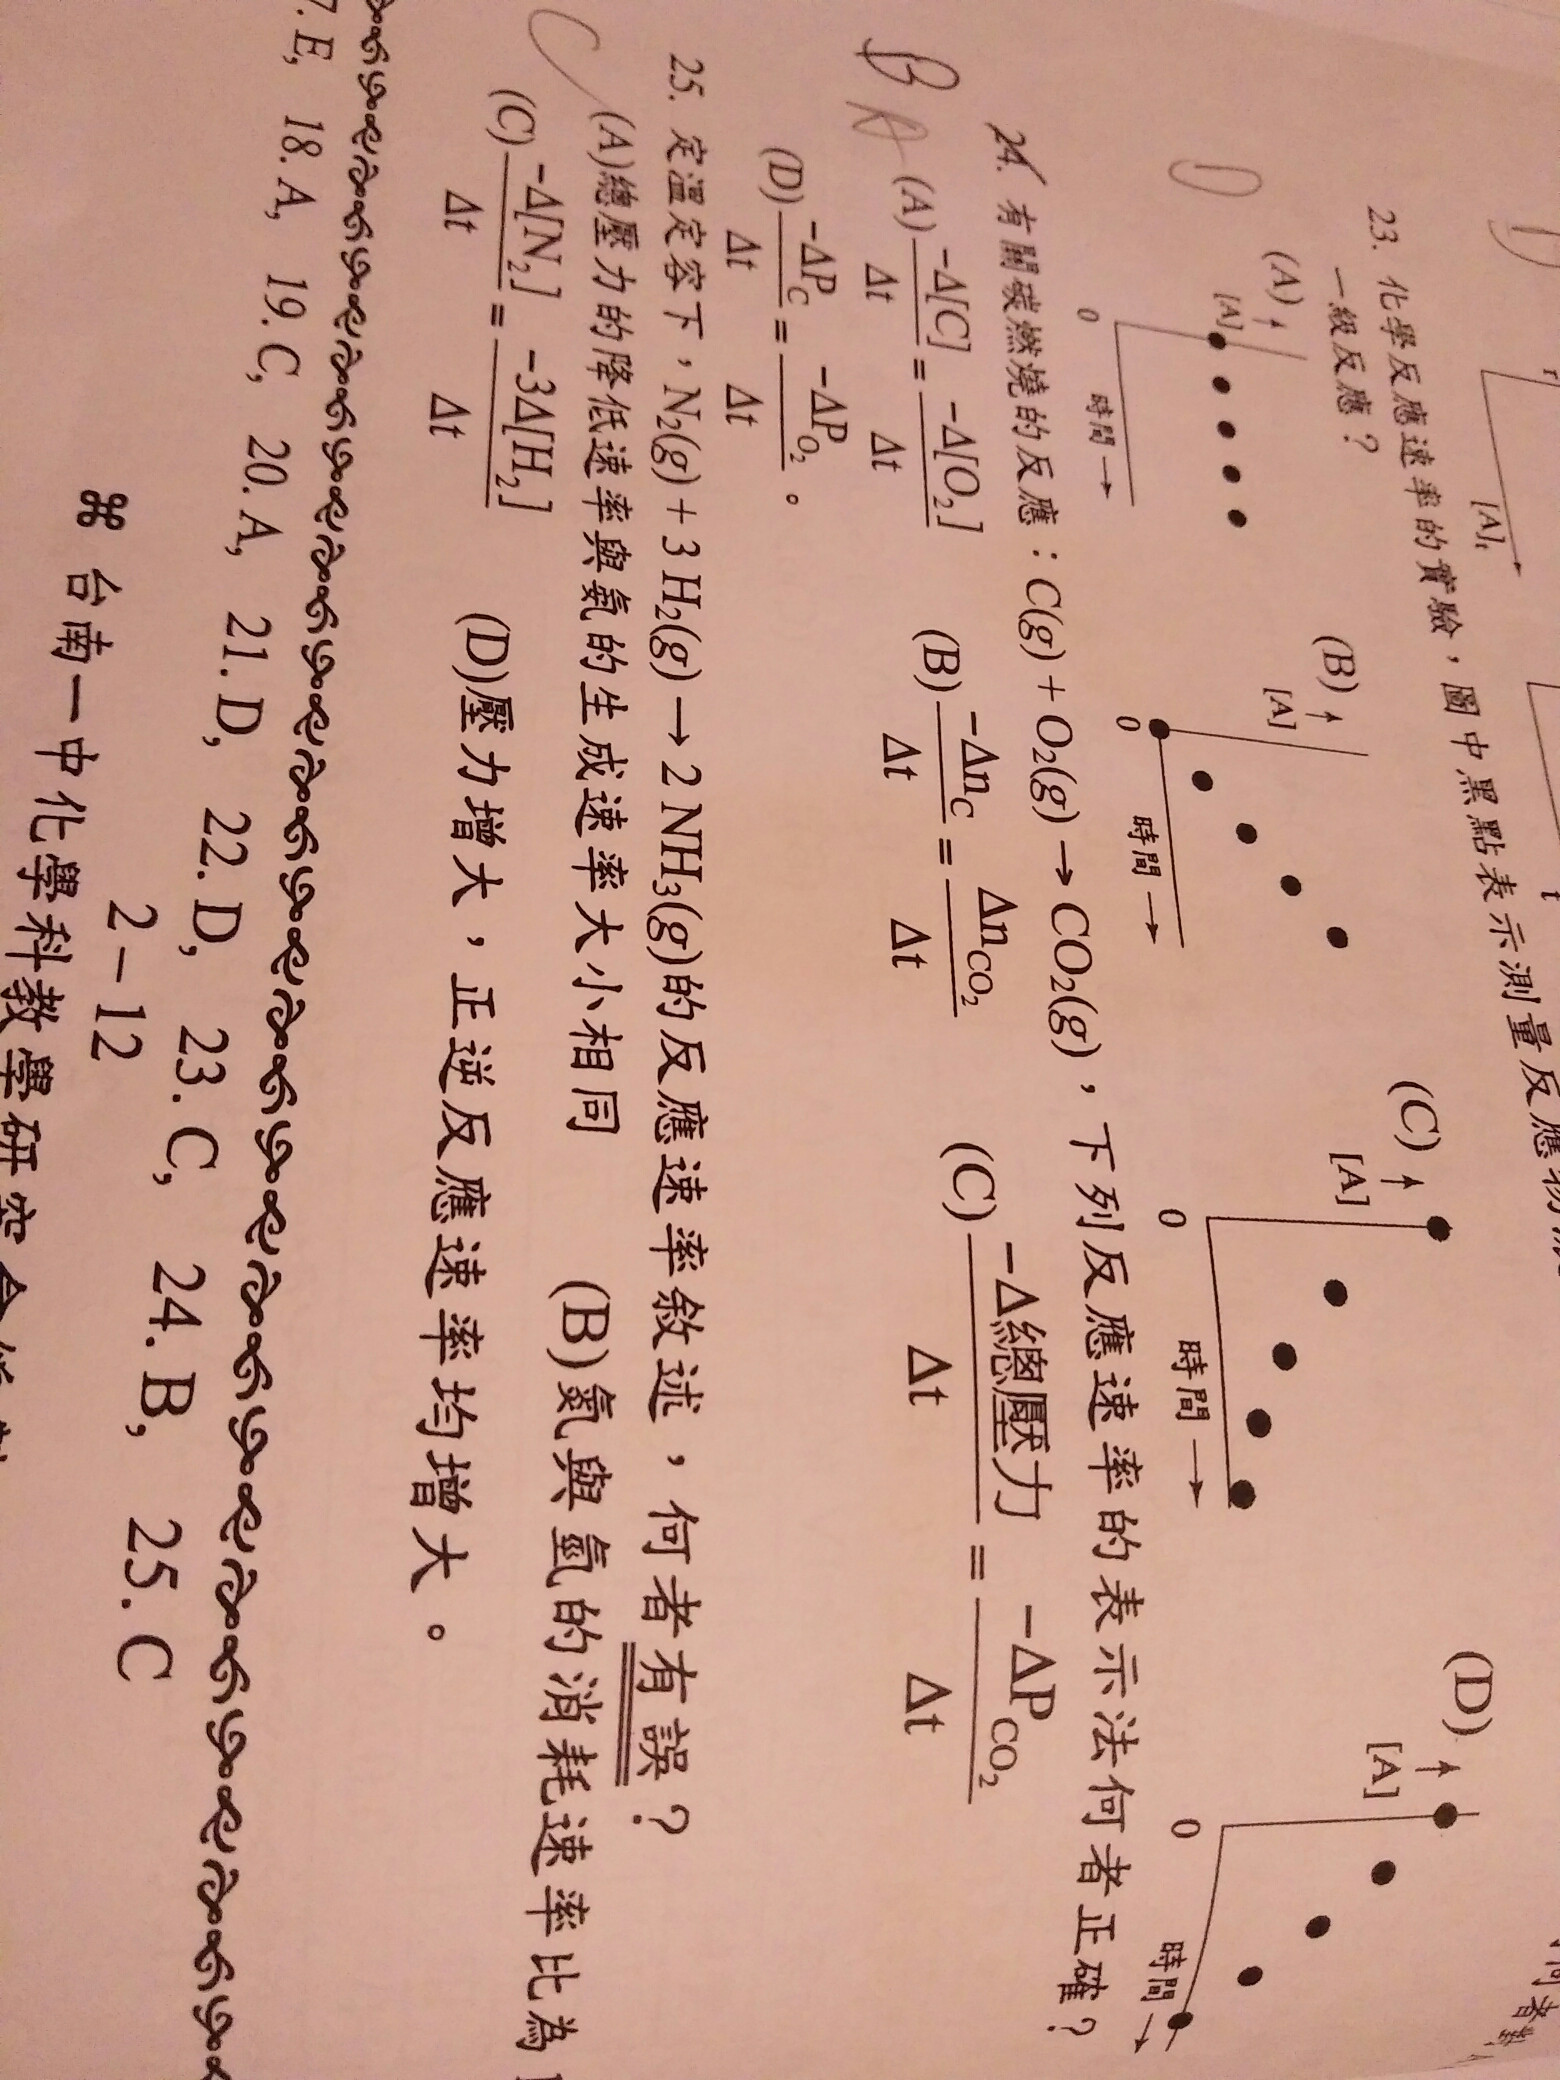 r
[A]t
t
23. 化學反應速率的實驗，圖中黑點表示測量反應物
一級反應？
(A) [A] 0 時間→
(B) [A] 0 時間→
(C) [A] 0 時間→
(D) [A] 0 時間→
D
24. 有關碳燃燒的反應：C(g) + O₂(g) → CO₂(g)，下列反應速率的表示法何者正確？
B A
(A) -Δ[C]/Δt = -Δ[O₂]/Δt (B) -Δn_C/Δt = Δn_CO₂/Δt (C) -Δ總壓力/Δt = -ΔP_CO₂/Δt
(D) -ΔP_C/Δt = -ΔP_O₂/Δt。
25. 定溫定容下，N₂(g) + 3 H₂(g) → 2 NH₃(g)的反應速率敘述，何者有誤？
C
(A)總壓力的降低速率與氨的生成速率大小相同 (B)氮與氫的消耗速率比為
(C) -Δ[N₂]/Δt = -3Δ[H₂]/Δt (D)壓力增大，正逆反應速率均增大。
7. E, 18. A, 19. C, 20. A, 21. D, 22. D, 23. C, 24. B, 25. C
2－12
⌘ 台南一中化學科教學研究會